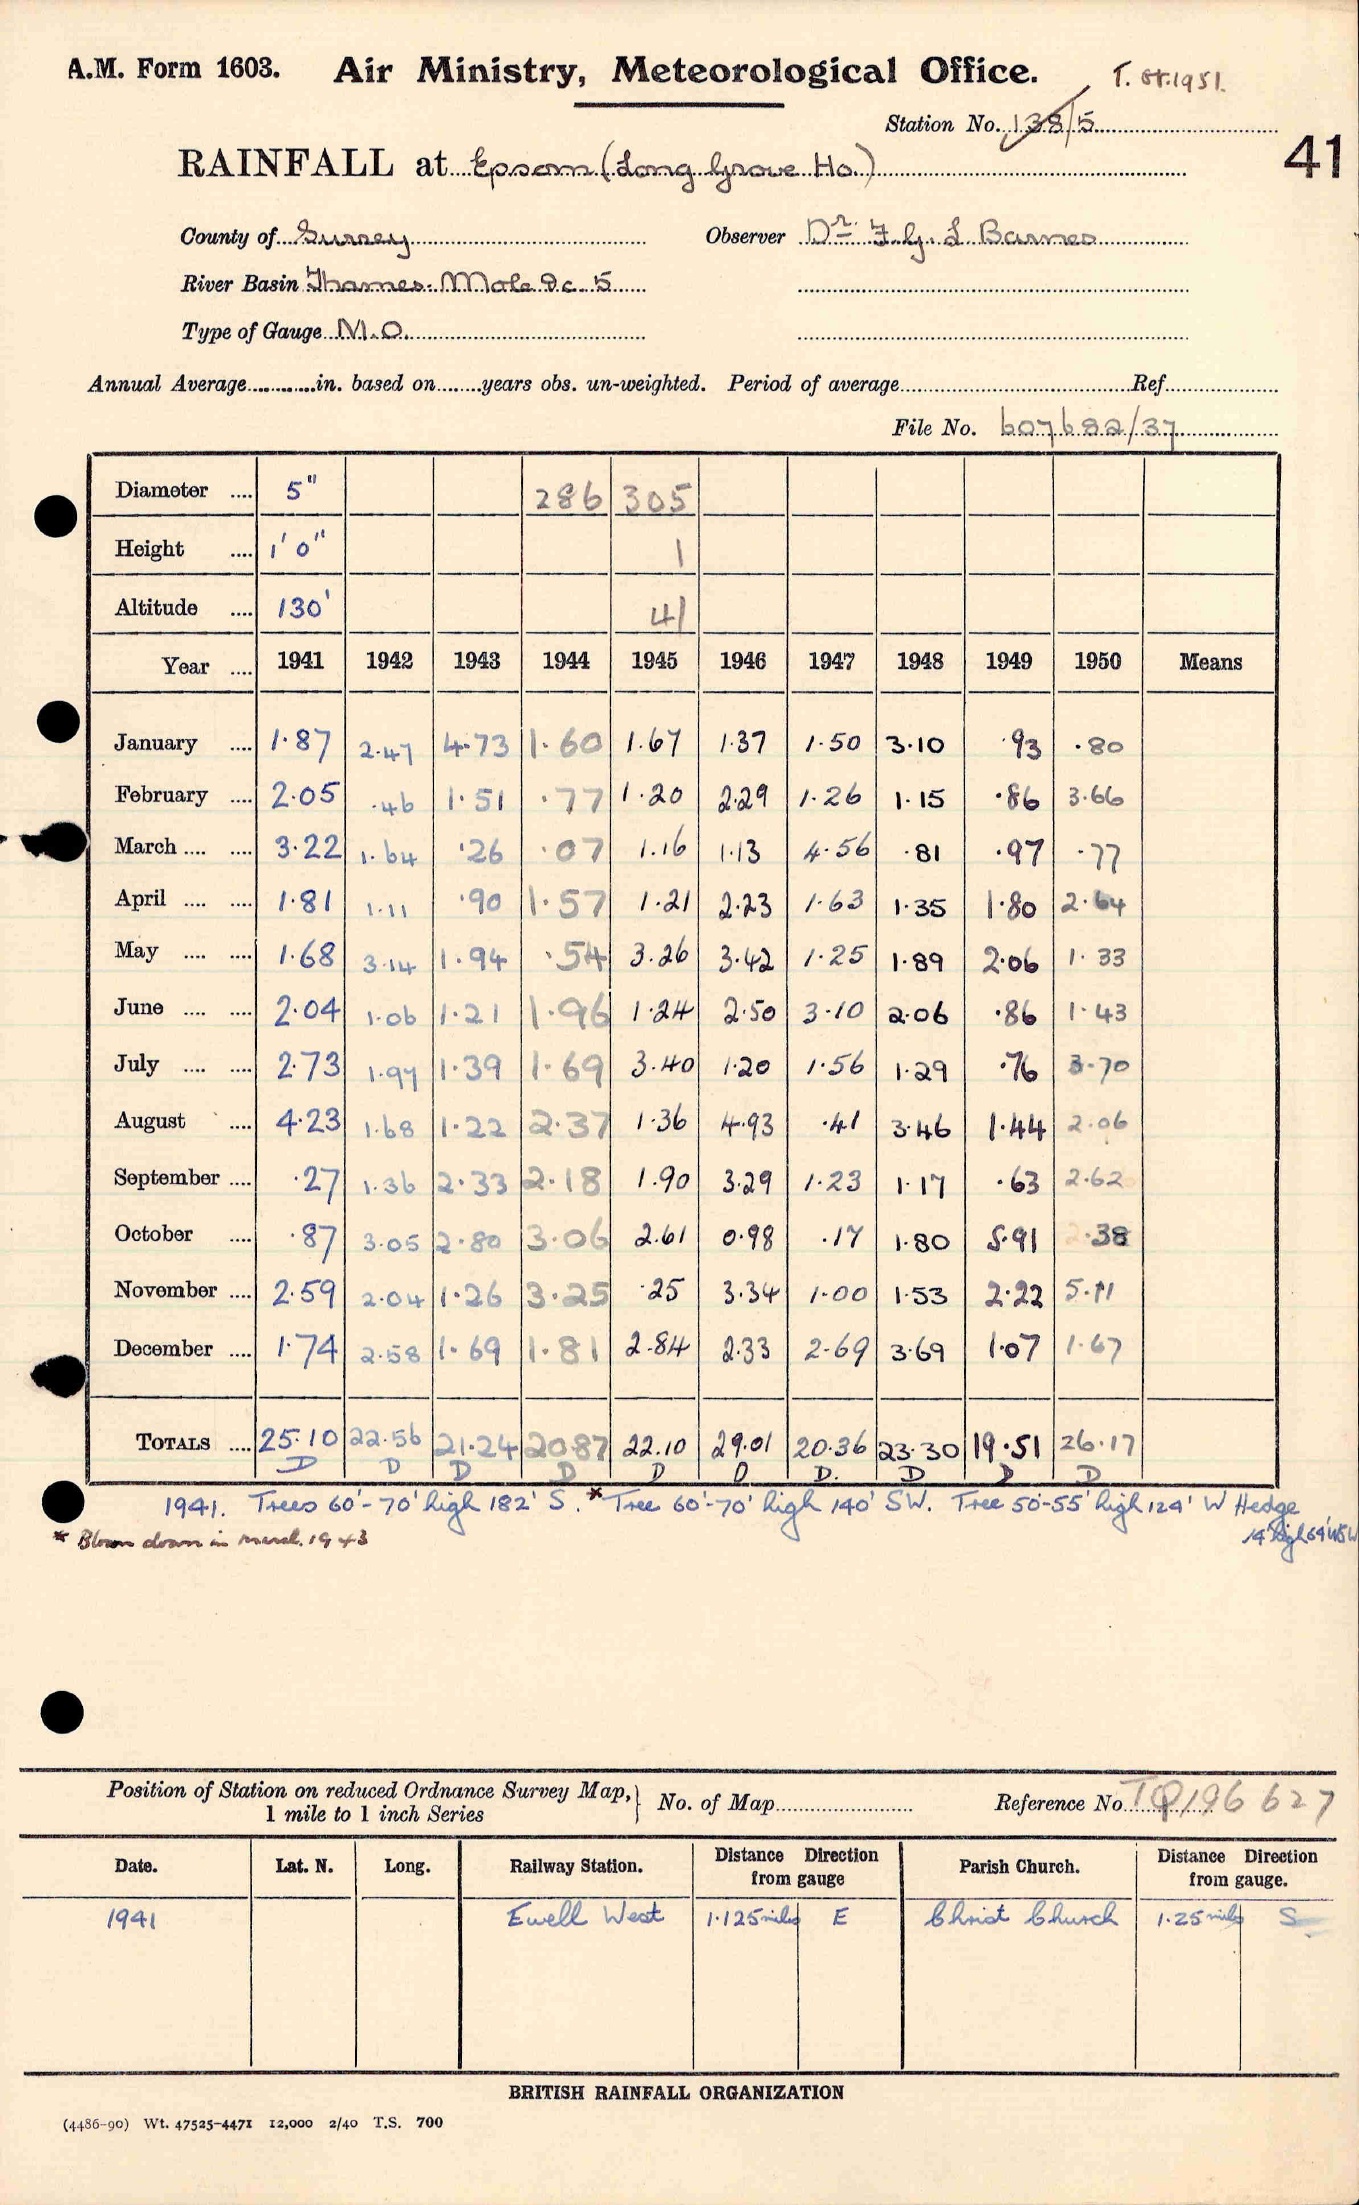 A.M. Form 1603. Air Ministry, Meteorological Office. T. 1951.
Station No. 138/5
41
RAINFALL at Epsom (Long Grove Ho.)
County of Surrey Observer Dr. F. G. L Barnes
River Basin Thames. Mole &c. 5
Type of Gauge M.O.
Annual Average............in. based on........years obs. un-weighted. Period of average............Ref............
File No. 607682/37
Diameter .... 5" 286 305
Height .... 1' 0" 1
Altitude .... 130' 41
Year .... 1941 1942 1943 1944 1945 1946 1947 1948 1949 1950 Means
January .... 1.87 2.47 4.73 1.60 1.67 1.37 1.50 3.10 .93 .80
February .... 2.05 .46 1.51 .77 1.20 2.29 1.26 1.15 .86 3.66
March .... .... 3.22 1.64 .26 .07 1.16 1.13 4.56 .81 .97 .77
April .... .... 1.81 1.11 .90 1.57 1.21 2.23 1.63 1.35 1.80 2.64
May .... .... 1.68 3.14 1.94 .54 3.26 3.42 1.25 1.89 2.06 1.33
June .... .... 2.04 1.06 1.21 1.96 1.24 2.50 3.10 2.06 .86 1.43
July .... .... 2.73 1.97 1.39 1.69 3.40 1.20 1.56 1.29 .76 3.70
August .... 4.23 1.68 1.22 2.37 1.36 4.93 .41 3.46 1.44 2.06
September .... .27 1.36 2.33 2.18 1.90 3.29 1.23 1.17 .63 2.62
October .... .87 3.05 2.80 3.06 2.61 0.98 .17 1.80 5.91 2.38
November .... 2.59 2.04 1.26 3.25 .25 3.34 1.00 1.53 2.22 5.11
December .... 1.74 2.58 1.69 1.81 2.84 2.33 2.69 3.69 1.07 1.67
TOTALS .... 25.10 22.56 21.24 20.87 22.10 29.01 20.36 23.30 19.51 26.17
D D D D D D D. D D D
1941. Trees 60'-70' high 182' S. * Tree 60'-70' high 140' SW. Tree 50'-55' high 124' W Hedge
14' high 64' WSW
* Blown down in March 1943
Position of Station on reduced Ordnance Survey Map, 1 mile to 1 inch Series } No. of Map............ Reference No. TQ 196 627
Date. Lat. N. Long. Railway Station. Distance Direction from gauge Parish Church. Distance Direction from gauge.
1941 Ewell West 1.125 miles E Christ Church 1.25 miles S
BRITISH RAINFALL ORGANIZATION
(4486-90) Wt. 47525-4471 12,000 2/40 T.S. 700